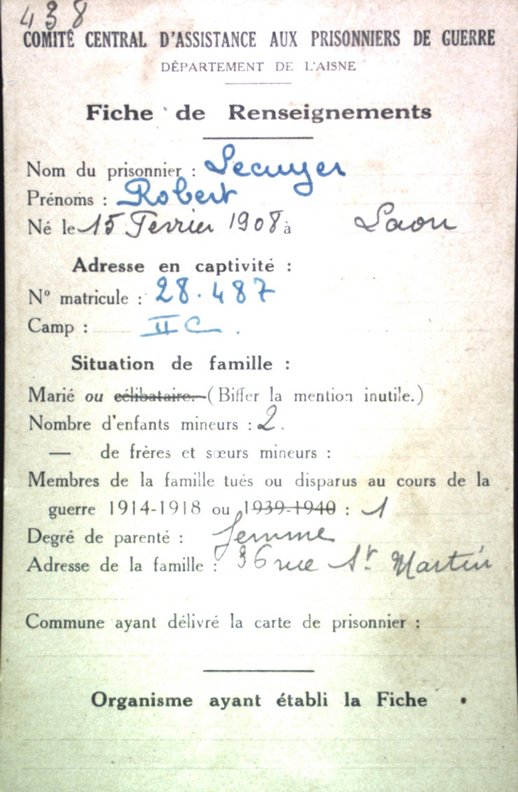 438
COMITÉ CENTRAL D'ASSISTANCE AUX PRISONNIERS DE GUERRE
DÉPARTEMENT DE L'AISNE
Fiche de Renseignements
Nom du prisonnier : Lecuyer
Prénoms : Robert
Né le 15 Fevrier 1908 à Laon
Adresse en captivité :
N° matricule : 28.487
Camp : II C.
Situation de famille :
Marié ou célibataire. (Biffer la mention inutile.)
Nombre d'enfants mineurs : 2.
— de frères et sœurs mineurs :
Membres de la famille tués ou disparus au cours de la
guerre 1914-1918 ou 1939-1940 : 1
Degré de parenté : femme
Adresse de la famille : 36 rue St Martin
Commune ayant délivré la carte de prisonnier :
Organisme ayant établi la Fiche